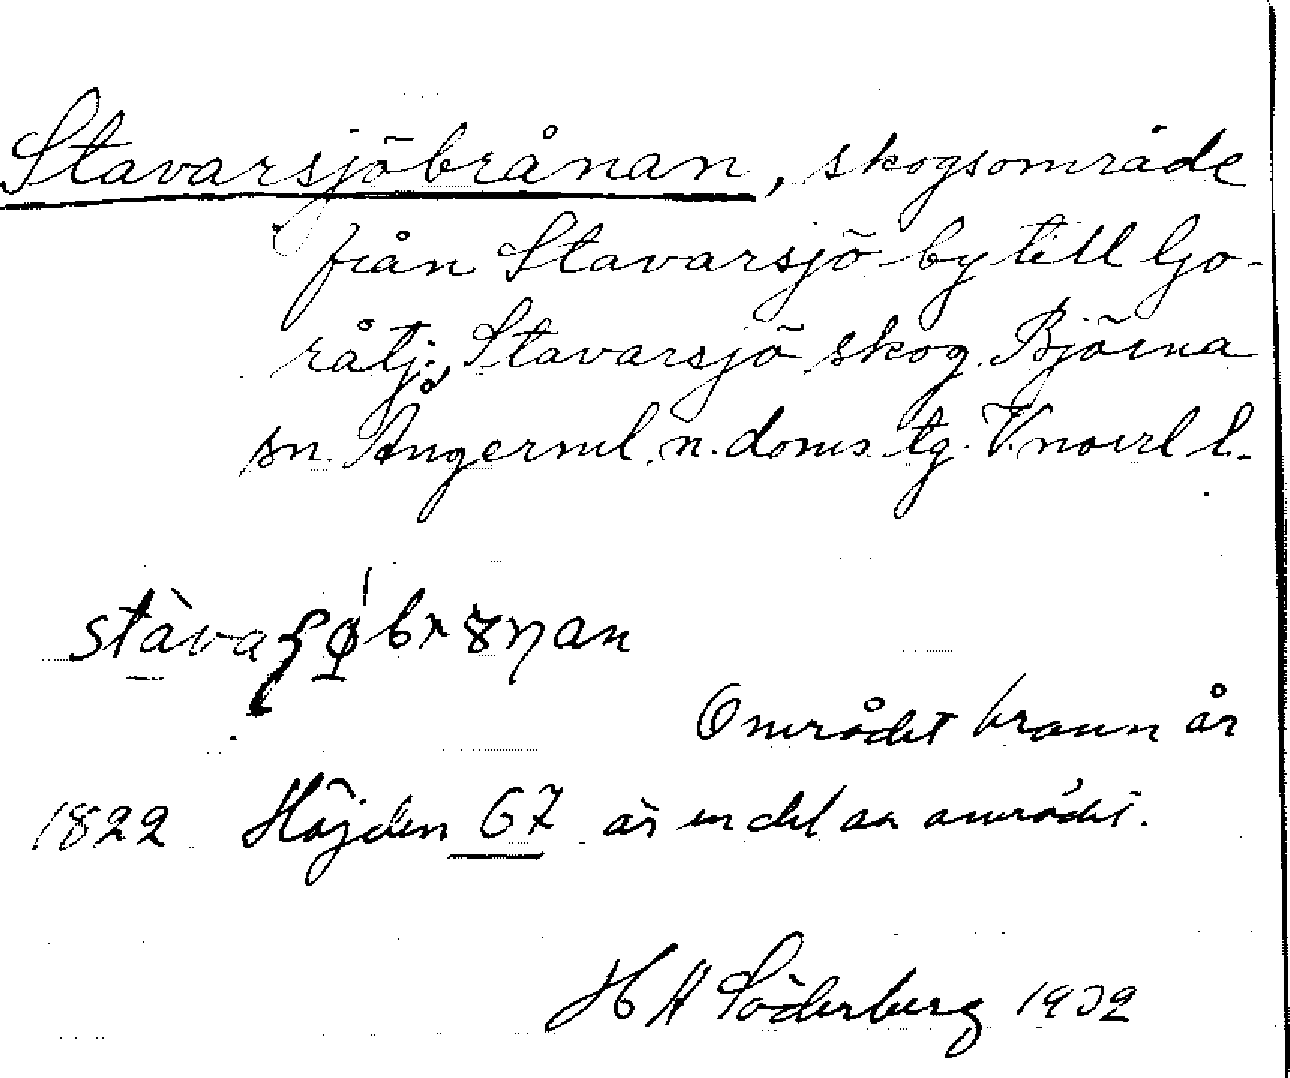 Stavarsjöbrånan, skogsområde
från Stavarsjö by till Go-
råtj., Stavarsjö skog. Björna
sn. Ångerml. n. doms. tg. V.norrl l.
Området brann år
1822 Höjden 67 är en del av området.
H A Söderberg 1932